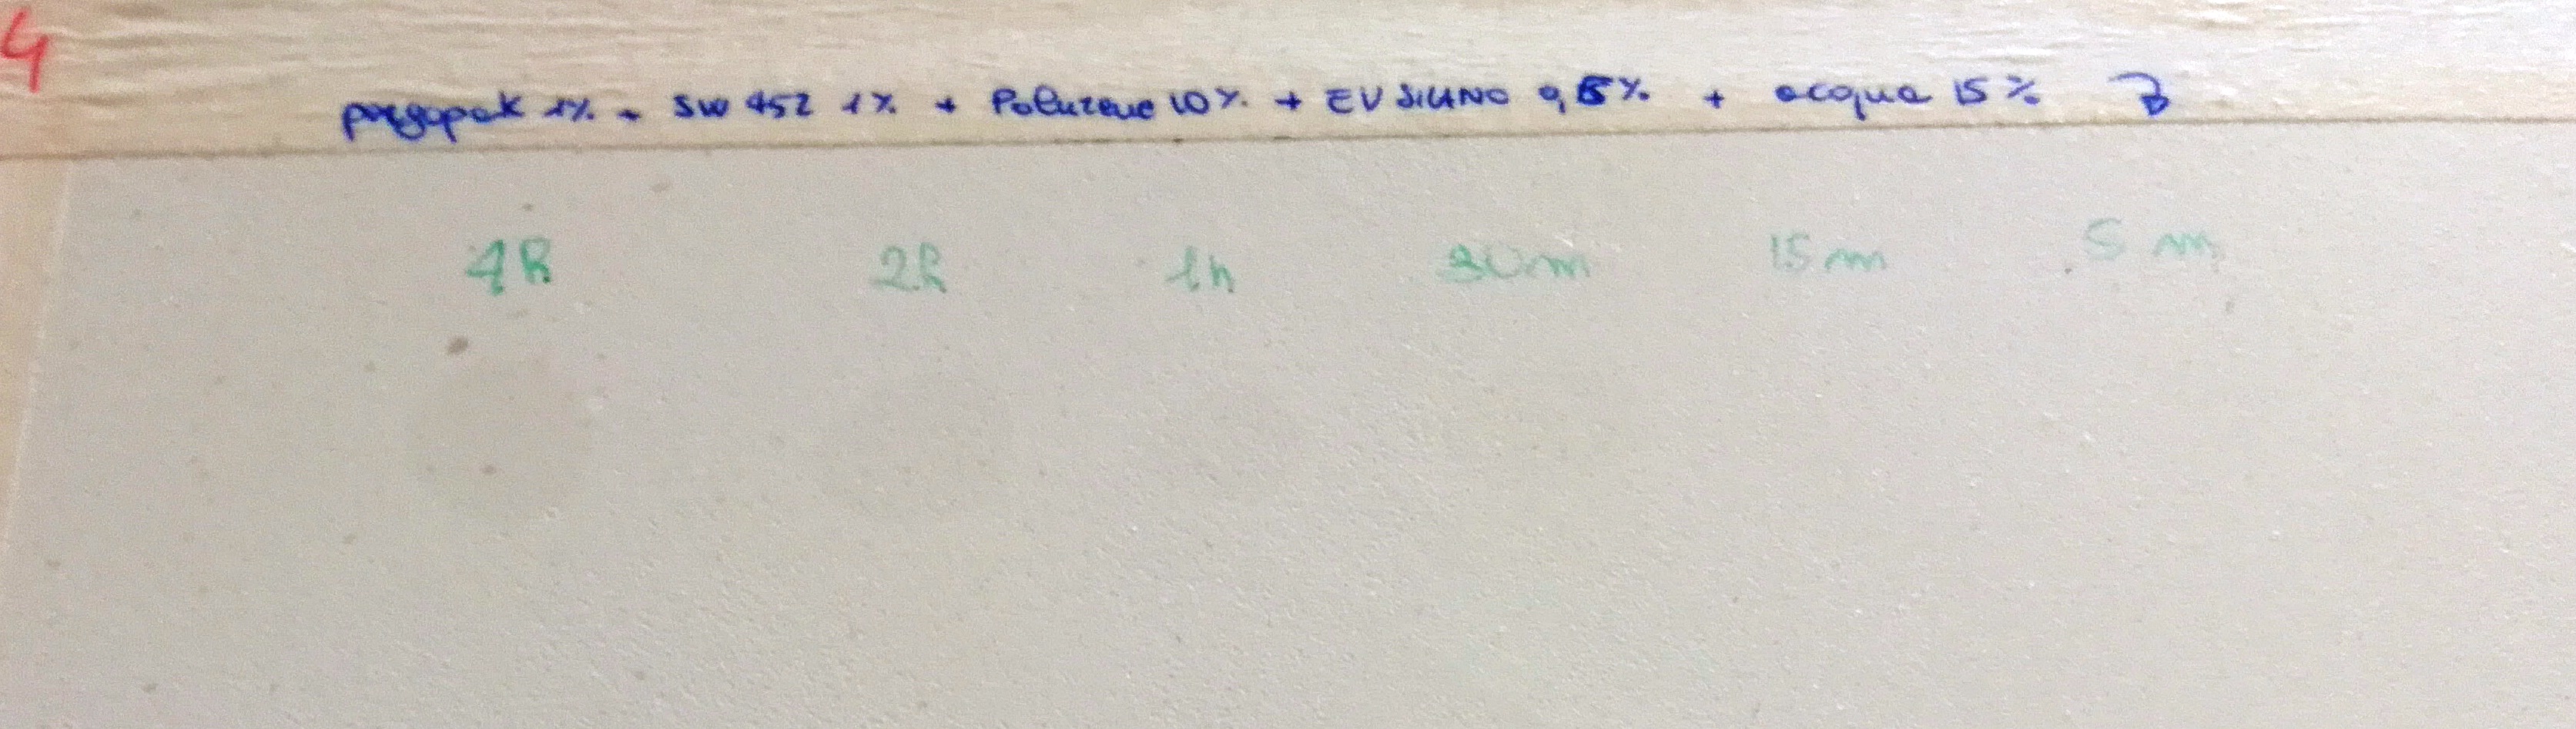 4
pergopak 1% + SW 452 1% + Polurene 10% + EV SILANO 0,5% + acqua 15%
4h 2h 1h 30m 15m 5m